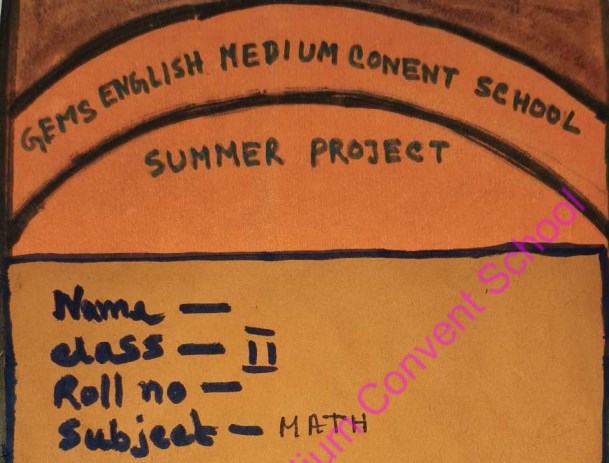 GEMS ENGLISH MEDIUM CONENT SCHOOL
SUMMER PROJECT
Name —
class — II
Roll no —
Subject — MATH
Convent School